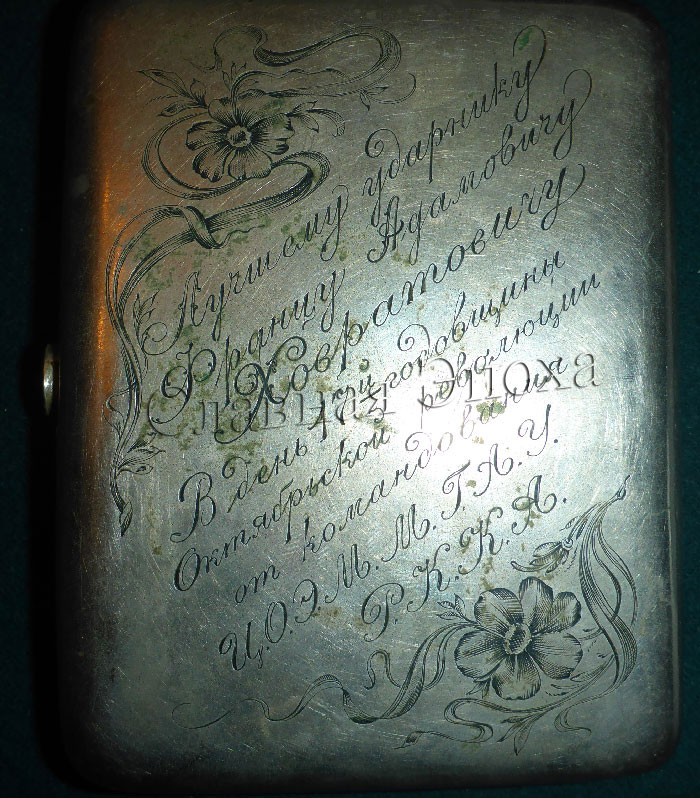 Лучшему ударнику
Францу Адамовичу
Ховратовичу
В день годовщины
Октябрьской революции
Славная Эпоха
от командования
Ц.О.Э.М.М.Г.А.У.
Р.К.К.А.